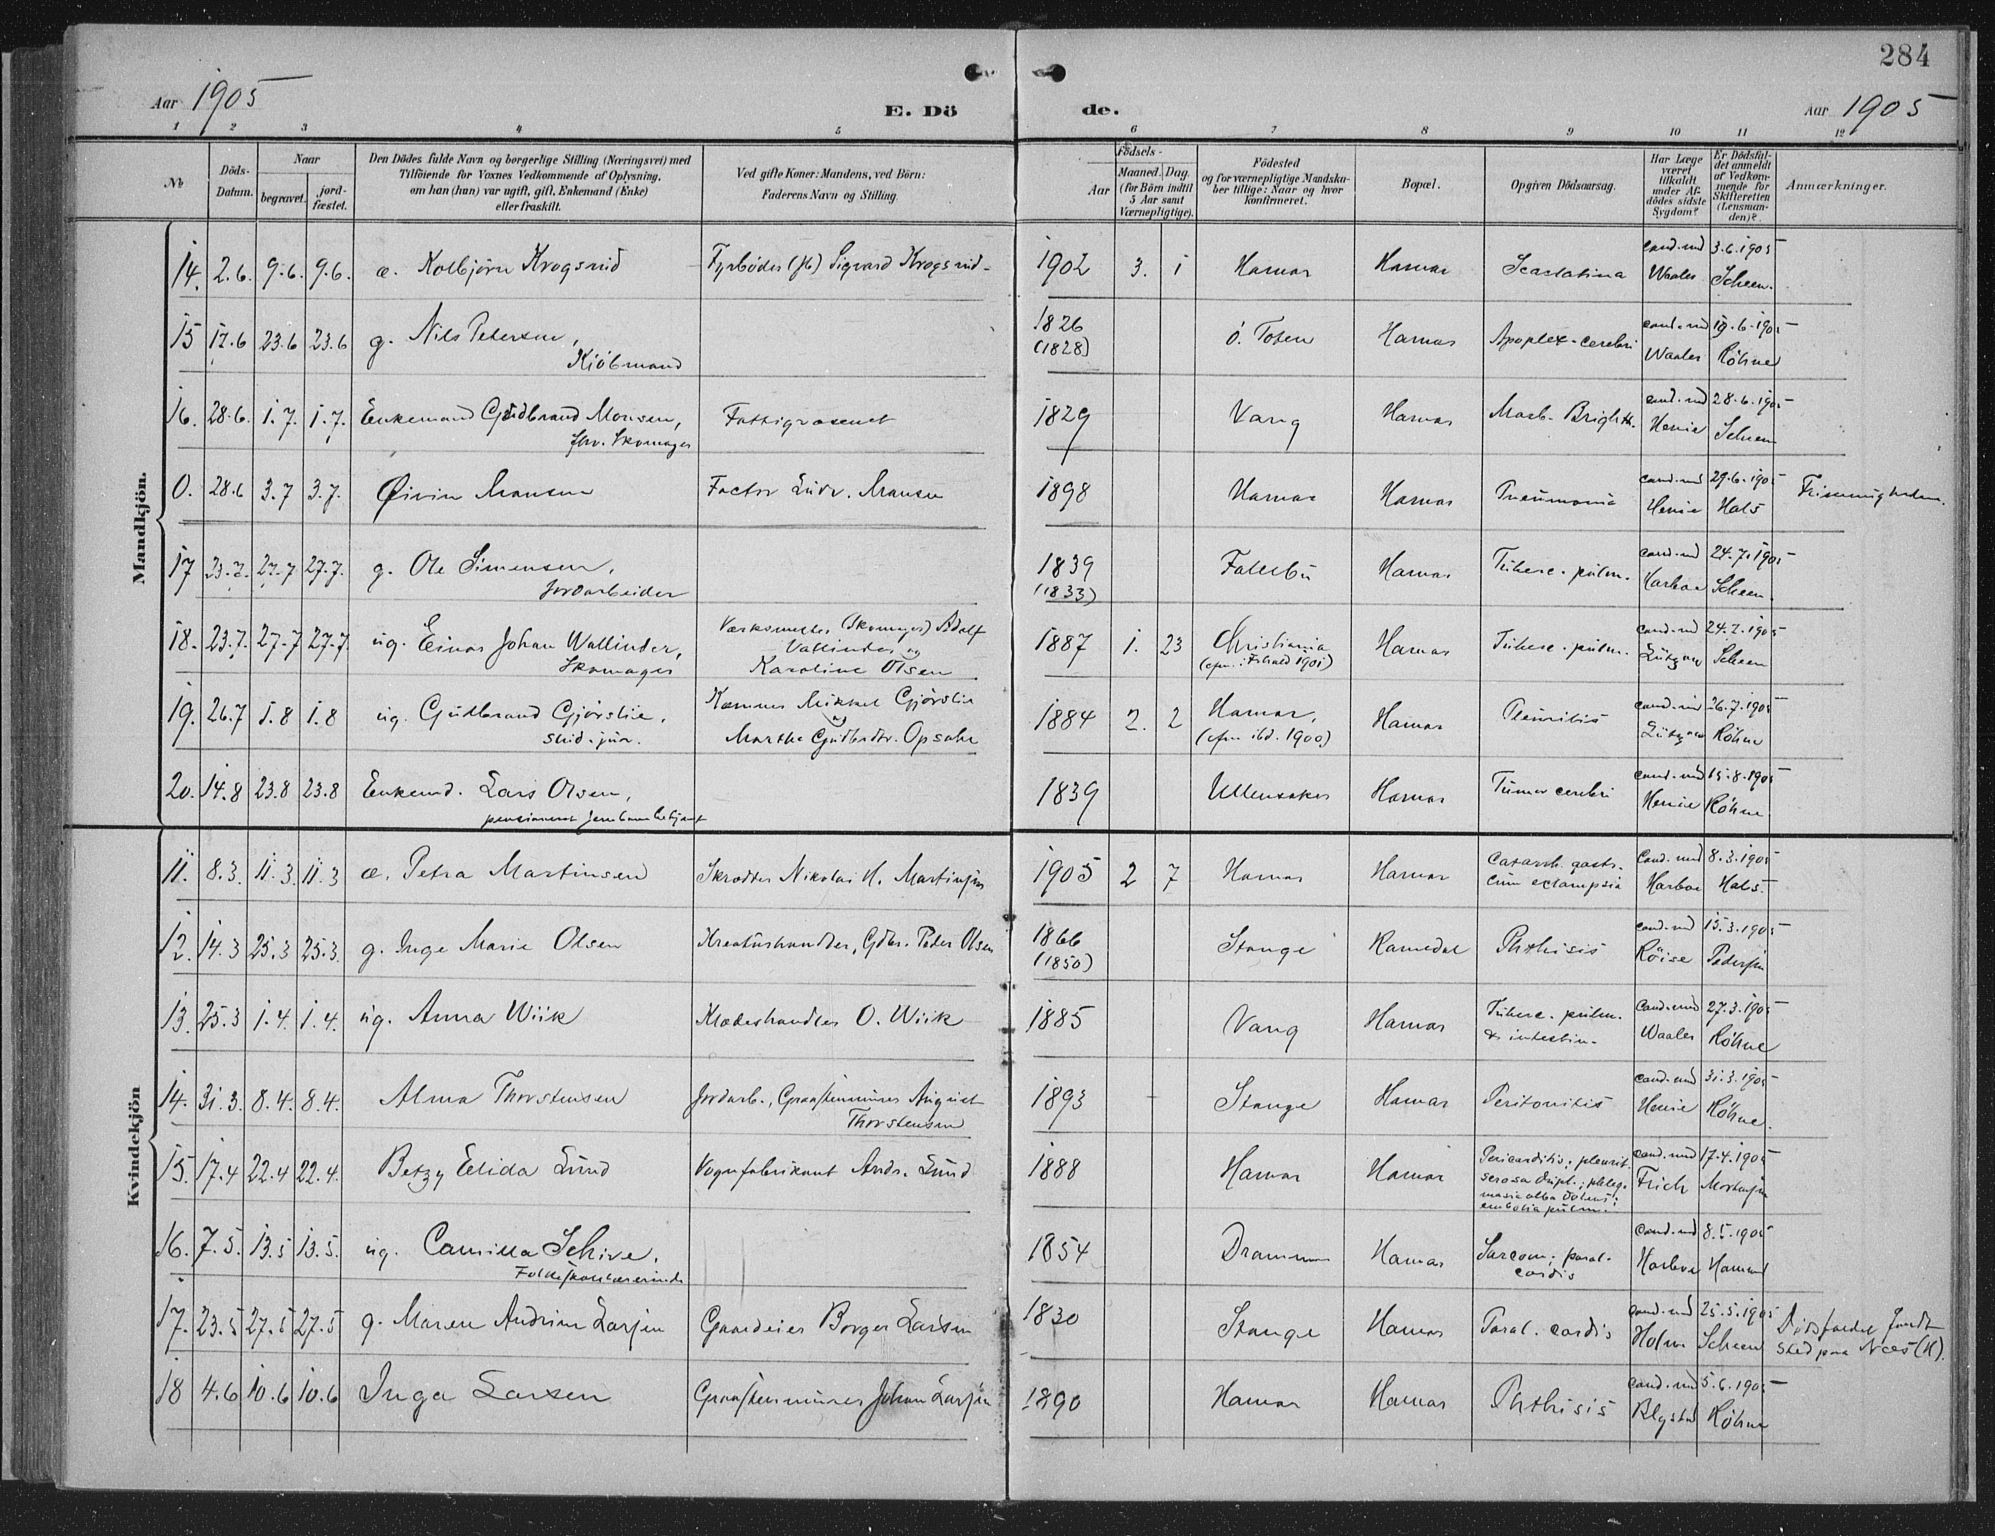 284
Aar 1905
E. Döde.
Aar 1905
1 2 3 4 5 6 7 8 9 10 11 12
No
Döds-Datum.
Naar
begravet.
jord-fæstet.
Den Dödes fulde Navn og borgerlige Stilling (Næringsvei) med
Tilföiende for Voxnes Vedkommende af Oplysning,
om han (hun) var ugift, gift, Enkemand (Enke)
eller fraskilt.
Ved gifte Koner: Mandens, ved Börn:
Faderens Navn og Stilling.
Födsels-
Aar
Maaned. Dag.
(for Börn indtil
5 Aar samt
Værnepligtige).
Födested
og for værnepligtige Mandska-
ber tillige: Naar og hvor
konfirmeret.
Bopæl.
Opgiven Dödsaarsag.
Har Læge
været
tilkaldt
under Af-
dödes sidste
Sygdom?
Er Dödsfal-
det anmeldt
af Vedkom-
mende for
Skifteretten
(Lensman-
den)?
Anmærkninger.
Mandkjön.
14. 2.6. 9.6. 9.6. æ. Kolbjörn Krogsrud Fyrböder (Jb) Sigvard Krogsrud 1902 3. 1 Hamar Hamar Scarlatina cand. med Waaler 3.6.1905 Scheen.
15 17.6 23.6 23.6 g. Nils Petersen, Kjöbmand 1826 (1828) Ö. Toten Hamar Apoplex. cerebri cand. med Waaler 19.6.1905 Röhne
16. 28.6. 1.7. 1.7. Enkemand Gudbrand Monsen, fhv. Skomager Fattigvæsenet 1829 Vang Hamar Morb. Brightii. cand. med Henie 28.6.1905 Scheen
0. 28.6 3.7 3.7. Øivin Hansen Factor Ludv. Hansen 1898 Hamar Hamar Pneumonia cand. med Henie 29.6.1905 Hals Frimenigheden.
17 23.7. 27.7 27.7. g. Ole Simensen, Jordarbeider 1839 (1833) Faaberg Hamar Tuberc. pulm. cand. med Harboe 24.7.1905 Scheen.
18. 23.7. 27.7 27.7 ug. Einar Johan Wallinder, Skomager Værksmester (Skomager) Adolf Vallinder og Karoline Olsen 1887 1. 23 Christiania Hamar Tuberc. pulm. cand. med Lützow 24.7.1905 Scheen
19. 26.7 1.8 1.8 ug. Gudbrand Gjörslie, stud. jur. Kæmner Mikkel Gjörslie og Marthe Gudbrdtr. Opsahl 1884 2. 2 Hamar, (cfm. ibd. 1900) Hamar Pleuritis cand. med Lützow 26.7.1905 Röhne
20. 14.8 23.8 23.8 Enkemd. Lars Olsen, pensioneret Jernbanebetjent 1839 Ullensaker Hamar Tumor cerebri cand. med Henie 15.8.1905 Röhne
Kvindekjön
11. 8.3. 11.3 11.3 æ. Petra Martinsen Skrædder Nikolai H. Martinsen 1905 2 7 Hamar Hamar Catarrh. gastricum eclampsia cand. med Harboe 8.3.1905 Hals.
12. 14.3 25.3 25.3. g. Inge Marie Olsen Kreaturhandler, Gdbr. Peder Olsen 1866 (1850) Stange Romedal Phthisis cand. med Röise 15.3.1905 Pedersen
13. 25.3 1.4. 1.4. ug. Anna Wiik Klædeshandler O. Wiik 1885 Vang Hamar Tuberc. pulm. & intestin. cand. med Waaler 27.3.1905 Röhne
14. 31.3. 8.4. 8.4. Alma Thorstensen Jordarb., Graastensmurer August Thorstensen 1893 Stange Hamar Peritonitis cand. med Henie 31.3.1905 Röhne.
15. 17.4 22.4 22.4. Betzy Elida Lund Vognfabrikant Andr. Lund 1888 Hamar Hamar Pericarditis; pleurit. serosa dupl.; phlegmasia alba dolens; embolia pulm. cand. med Frich 17.4.1905 Mortensen
16. 7.5. 13.5 13.5. ug. Camilla Schive, Folkeskolelærerinde 1854 Drammen Hamar Sarcom; paral. cordis cand. med Harboe 8.5.1905
17. 23.5 27.5 27.5 g. Maren Andrine Larsen Gaardeier Borger Larsen 1830 Stange Hamar Paral. cordis cand. med Holm 25.5.1905 Scheen Dödsfaldet fandt sted paa Næs (H).
18 4.6 10.6 10.6 Inga Larsen Graastensmurer Johan Larsen 1890 Hamar Hamar Phthisis cand. med Blystad 5.6.1905 Röhne